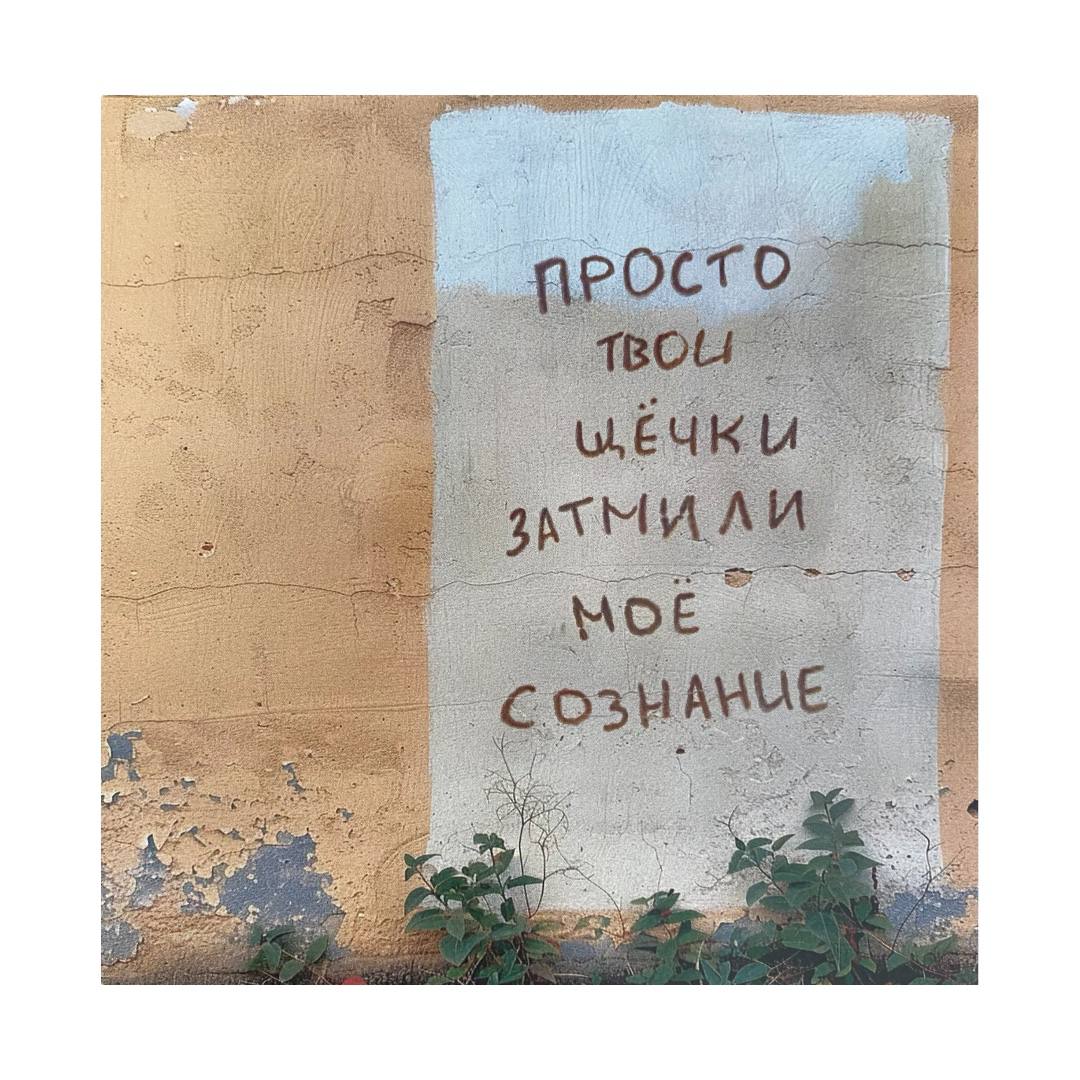 ПРОСТО
ТВОИ
ЩЁЧКИ
ЗАТМИЛИ
МОЁ
СОЗНАНИЕ